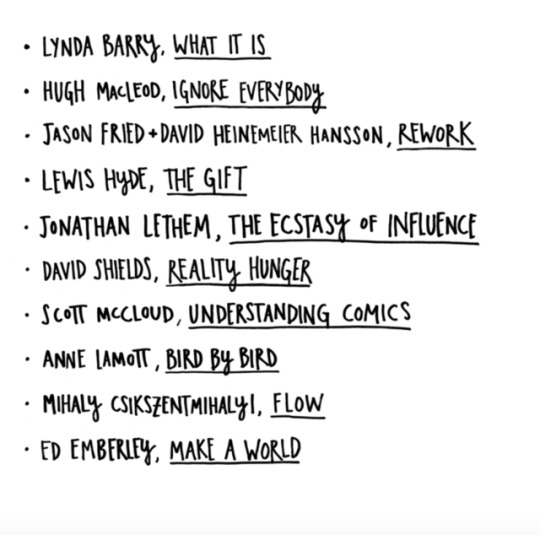 • LYNDA BARRY, WHAT IT IS
• HUGH MacLEOD, IGNORE EVERYBODY
• JASON FRIED + DAVID HEINEMEIER HANSSON, REWORK
• LEWIS HYDE, THE GIFT
• JONATHAN LETHEM, THE ECSTASY OF INFLUENCE
• DAVID SHIELDS, REALITY HUNGER
• SCOTT McCLOUD, UNDERSTANDING COMICS
• ANNE LAMOTT, BIRD BY BIRD
• MIHALY CSIKSZENTMIHALYI, FLOW
• ED EMBERLEY, MAKE A WORLD